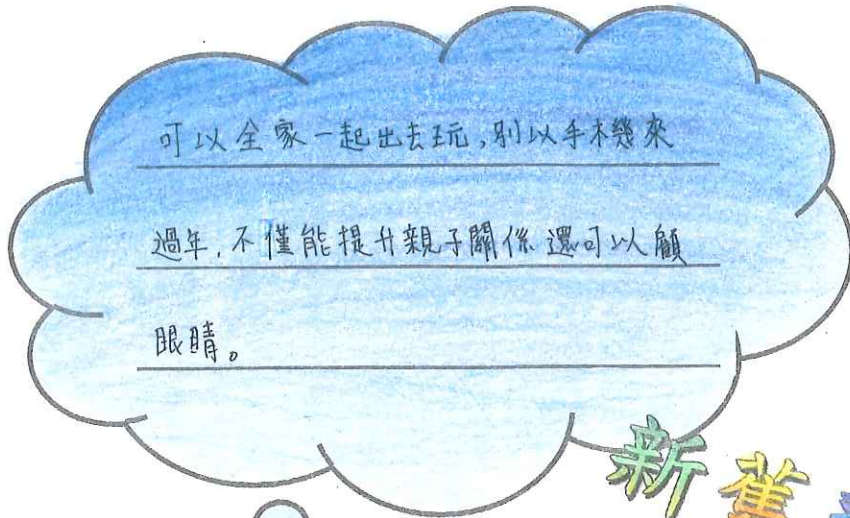 可以全家一起出去玩,別以手機來
過年,不僅能提升親子關係還可以顧
眼睛。
新舊